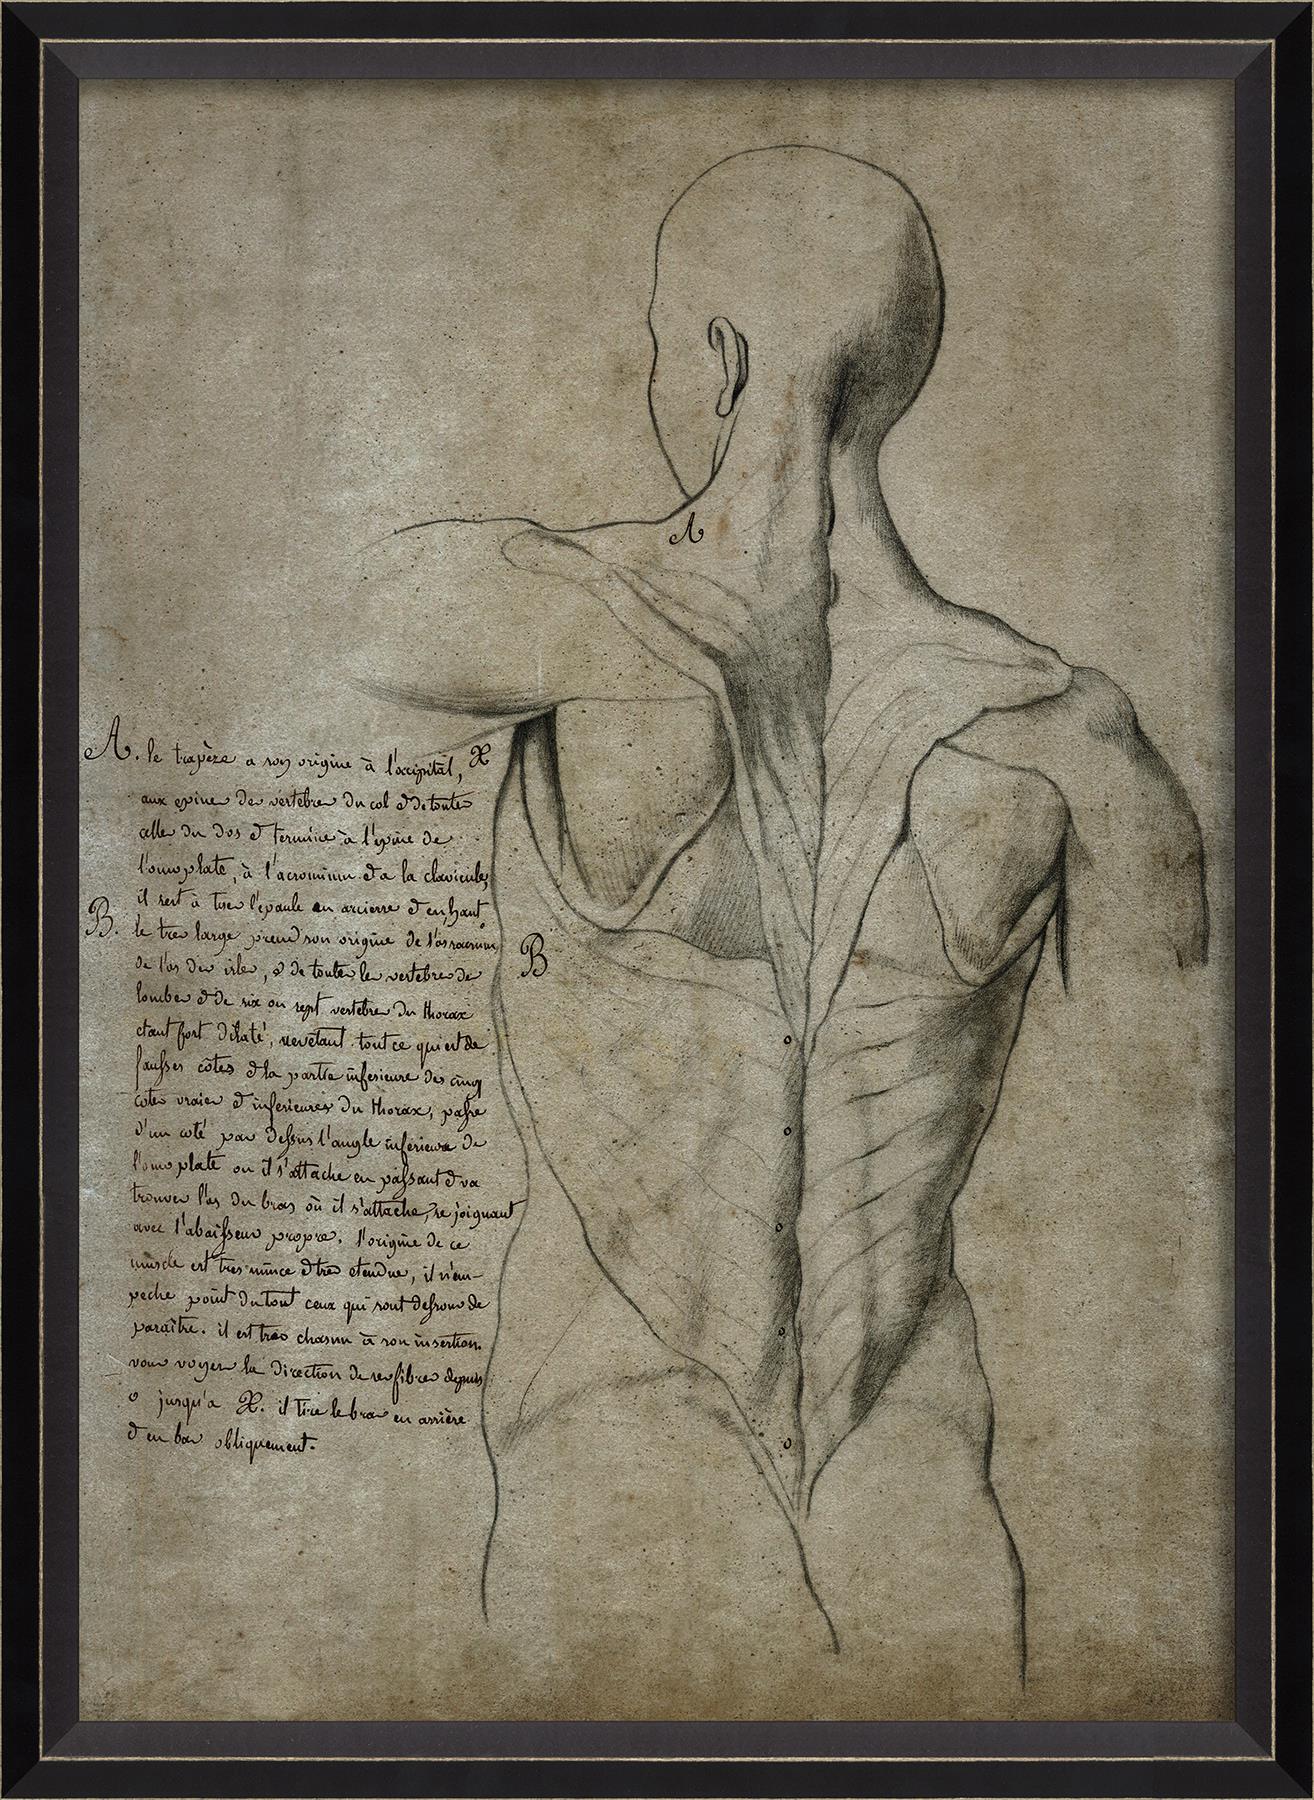 A
A. le trapèze a son origine à l'occipital, X
aux epines des vertebres du col et de toutes
celles du dos et termine à l'epine de
l'omoplate, à l'acromium et a la clavicule,
il sert à tirer l'epaule en arrierre et en haut
B. le tres large prend son origine de l'os sacrum
de l'os des isles, et de toutes les vertebres des
lombes et de six ou sept vertebres du thorax
etant fort dilaté, revetant tout ce qui est de
fausses côtes et la partie inferieure des cinq
cotes vraies et inferieures du thorax, passe
d'un coté par dessus l'angle inferieure de
l'omoplate ou il s'attache en passant et va
trouver l'os du bras où il s'attache, se joignant
avec l'abaisseur propre. l'origine de ce
muscle est tres mince et tres etendue, il n'em-
peche point du tout ceux qui sont dessous de
paraître. il est tres charnu à son insertion.
vous voyez la direction de ses fibres depuis
o jusqu'a X. il tire le bras en arrière
et en bas obliquement.
B
o
o
o
o
o